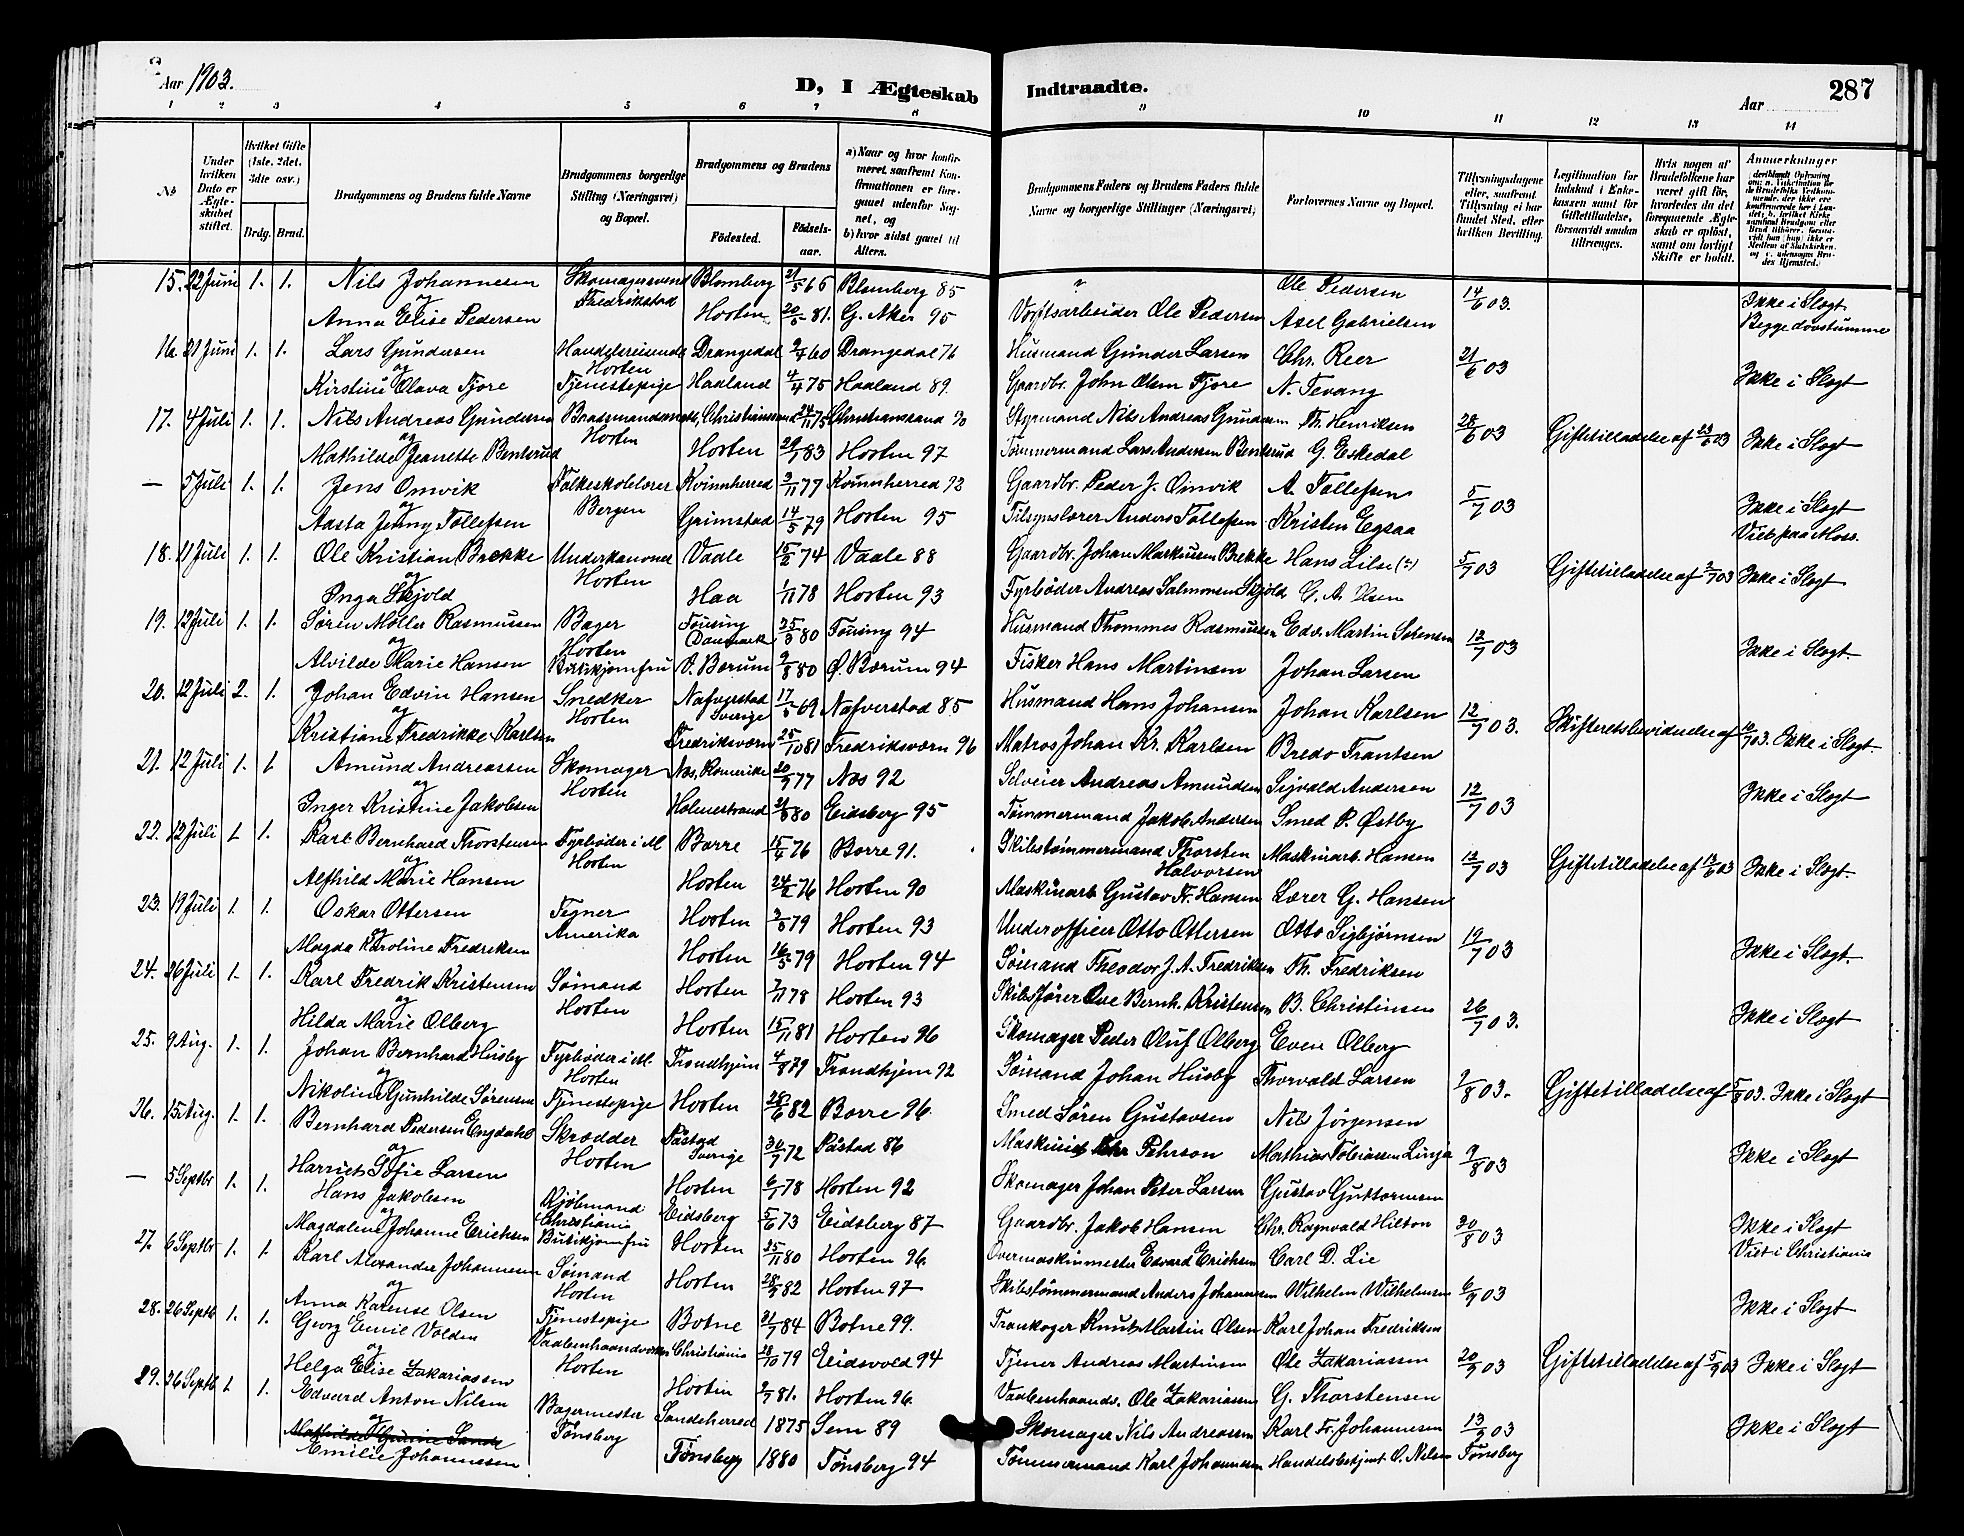 Aar 1903.
D, I Ægteskab Indtraadte.
Aar
287
1 2 3 4 5 6 7 8 9 10 11 12 13 14
No
Under hvilken Dato er Ægteskabet stiftet.
Hvilket Gifte (1ste, 2det, 3die osv.)
Brdg. Brud.
Brudgommens og Brudens fulde Navne
Brudgommens borgerlige Stilling (Næringsvei) og Bopæl.
Brudgommens og Brudens
Fødested.
Fødselsaar.
a) Naar og hvor konfirmeret, saafremt Konfirmationen er foregaaet udenfor Sognet, og
b) hvor sidst gaaet til Alters.
Brudgommens Faders og Brudens Faders fulde Navne og borgerlige Stillinger (Næringsvei)
Forlovernes Navne og Bopæl.
Tillysningsdagene eller, saafremt Tillysning ei har fundet Sted, efter hvilken Bevilling.
Legitimation for Indskud i Enkekassen samt for Giftetilladelse, forsaavidt saadan tiltrænges.
Hvis nogen af Brudefolkene har været gift før, hvorledes da det foregaaende Ægteskab er opløst, samt om lovligt Skifte er holdt.
Anmerkninger
15. 22 Juni 1. 1. Nils Johannesen Skomagersvend Blomberg 21/5 65 Blomberg 85 " Ole Pedersen 14/6 03. Ikke i Slægt
og Fredrikstad
Anna Elise Pedersen Horten 20/5 81. G. Aker 95 Værftsarbeider Ole Pedersen Axel Gabrielsen Begge døvstumme
16. 21 Juni 1. 1. Lars Gundersen Handelsreisende Drangedal 9/7 60 Drangedal 76 Husmand Gunder Larsen Chr. Reer 21/6 03
og Horten
Kirstine Olava Fjore Tjenestepige Haaland 4/4 75 Haaland 89. Gaardbr. John Olsen Fjore N. Tevang Ikke i Slægt
17. 4 Juli 1. 1. Nils Andreas Gundersen Christianssand 24/11 75 Christianssand 90 Styrmand Nils Andreas Gundersen Th. Henriksen 28/6 03 Giftetilladelse af 23/6 03 Ikke i Slægt
og Horten
Mathilde Jeanette Benterud Horten 29/1 83 Horten 97 Tømmermand Lars Andersen Benterud G. Eskedal
— 5 Juli 1. 1. Jens Omvik Folkeskolelærer Kvinnherred 3/11 77 Kvinnherred 92 Gaardbr. Peder J. Omvik A. Tollefsen 5/7 03 Ikke i Slægt
og Bergen
Aasta Jenny Tollefsen Grimstad 14/5 79 Horten 95 Tilsynslærer Anders Tollefsen Kristen Egsaa Viet paa Moss.
18. 11 Juli 1. 1. Ole Kristian Brekke Underkanoner Vaale 15/2 74 Vaale 88 Gaardbr. Johan Markussen Brekke Hans Lilse (?) 5/7 03 Giftetilladelse af 2/7 03 Ikke i Slægt
og Horten
Inga Skjold Haa 1/11 78 Horten 93 Fyrbøder Andreas Salmonsen Skjold C. A. Olsen
19. 12 Juli 1. 1. Søren Møller Rasmussen Bager Tousing Danmark 25/3 80 Tousing 94 Husmand Thommes Rasmussen Edv. Martin Sørensen 12/7 03
og Horten
Alvilde Marie Hansen Butikjomfru Ø. Bærum 9/8 80 Ø. Bærum 94 Fisker Hans Martinsen Johan Larsen Ikke i Slægt.
20. 12 Juli 2. 1. Johan Edvin Hansen Snedker Nafverstad Sverige 17/5 69 Nafverstad 85 Husmand Hans Johansen Johan Karlsen 12/7 03. Skifteretsbevidnelse af 10/7 03. Ikke i Slægt
og Horten
Kristiane Fredrikke Karlsen Fredriksværn 25/10 81 Fredriksværn 96 Matros Johan Kr. Karlsen Bredo Frantsen
21. 12 Juli 1. 1 Amund Andreassen Skomager Næs, Romerike 20/9 77 Næs 92 Selveier Andreas Amundsen Sigvald Andersen 12/7 03 Ikke i Slægt
og Horten
Inger Kristine Jakobsen Holmestrand 21/8 80 Eidsberg 95 Tømmermand Jakob Andersen Smed P. Østby
22. 12 Juli 1 1. Karl Bernhard Thorstensen Fyrbøder i M Borre 15/4 76 Borre 91. Skibstømmermand Thorsten Halvorsen Maskinarb. Hansen 12/7 03 Giftetilladelse af 12/6 03 Ikke i Slægt
og Horten
Alfhild Marie Hansen Horten 24/2 76 Horten 90 Maskinarb Gustav Fr. Hansen Lærer G. Hansen
23. 19 Juli 1. 1. Oskar Ottersen Tegner Horten 3/8 79 Horten 93 Underofficer Otto Ottersen Otto Sigbjørnsen 19/7 03 Ikke i Slægt.
og Amerika
Magda Karoline Fredriksen Horten 16/5 79 Horten 94 Sømand Theodor J. A. Fredriksen Th. Fredriksen
24. 26 Juli 1. 1. Karl Fredrik Kristensen Sømand Horten 7/11 78 Horten 93 Skibsfører Ove Bernh. Kristensen B. Christensen 26/7 03. Ikke i Slægt
og Horten
Hilda Marie Olberg Horten 15/11 81 Horten 96 Skomager Peder Oluf Olberg Even Olberg
25. 9 Aug. 1. 1. Johan Bernhard Husby Fyrbøder i M. Trondhjem 4/8 79 Trondhjem 92 Sømand Johan Husby Thorvald Larsen 2/8 03. Giftetilladelse af 5/8 03. Ikke i Slægt
og Horten
Nikoline Gunhilde Sørensen Tjenestepige Horten 28/6 82 Borre 96. Smed Søren Gustavsen Nils Jørgensen
26. 15 Aug. 1. 1. Bernhard Pedersen Engdahl Skrædder Påstad Sverige 30/7 72 Påstad 86 Pehrson Mathias Tobiassen Linja 9/8 03 Ikke i Slægt
og Horten
Harriet Sofie Larsen Horten 6/1 78 Horten 92 Skomager Johan Peter Larsen Gustav Guttormsen
— 5 Septbr 1. 1. Hans Jakobsen Kjøbmand Eidsberg 5/6 73 Eidsberg 87 Gaardbr. Jakob Hansen Chr. Ragnvald Hilton 30/8 03 Ikke i Slægt
og Christiania
Magdalene Johanne Erichsen Butikjomfru Horten 25/11 80 Horten 96. Overmaskinmester Edvard Erichsen Carl D. Lie Viet i Christiania
27. 6 Septbr 1. 1. Karl Alexander Johannesen Sømand Horten 28/9 82 Horten 97 Skibstømmermand Anders Johannesen Wilhelm Wilhelmsen 6/9 03 Ikke i Slægt
og Horten
Anna Karense Olsen Tjenestepige Botne 31/7 84 Botne 99. Trankoger Knut Martin Olsen Karl Johan Fredriksen
28. 26 Septb 1. 1. Georg Emil Volden Vaabenhaandverker Christiania 28/10 79 Eidsvold 94 Tjener Andreas Martinsen Ole Zakariassen 20/9 03 Giftetilladelse af 5/9 03 Ikke i Slægt
og Horten
Helga Elise Zakariassen Horten 9/7 81. Horten 96. Vaabenhaandv. Ole Zakariassen G. Thorstensen
29. 26 Septb 1 1. Edvard Anton Nilsen Bagermester Sandeherred 1875 Sem 89 Skomager Nils Andreassen Karl Fr. Johannesen 13/9 03 Ikke i Slægt
og Tønsberg
Emilie Johannesen Tønsberg 1880 Tønsberg 94 Tømmermand Karl Johannesen Handelsbetjent O. Nilsen Tønsberg